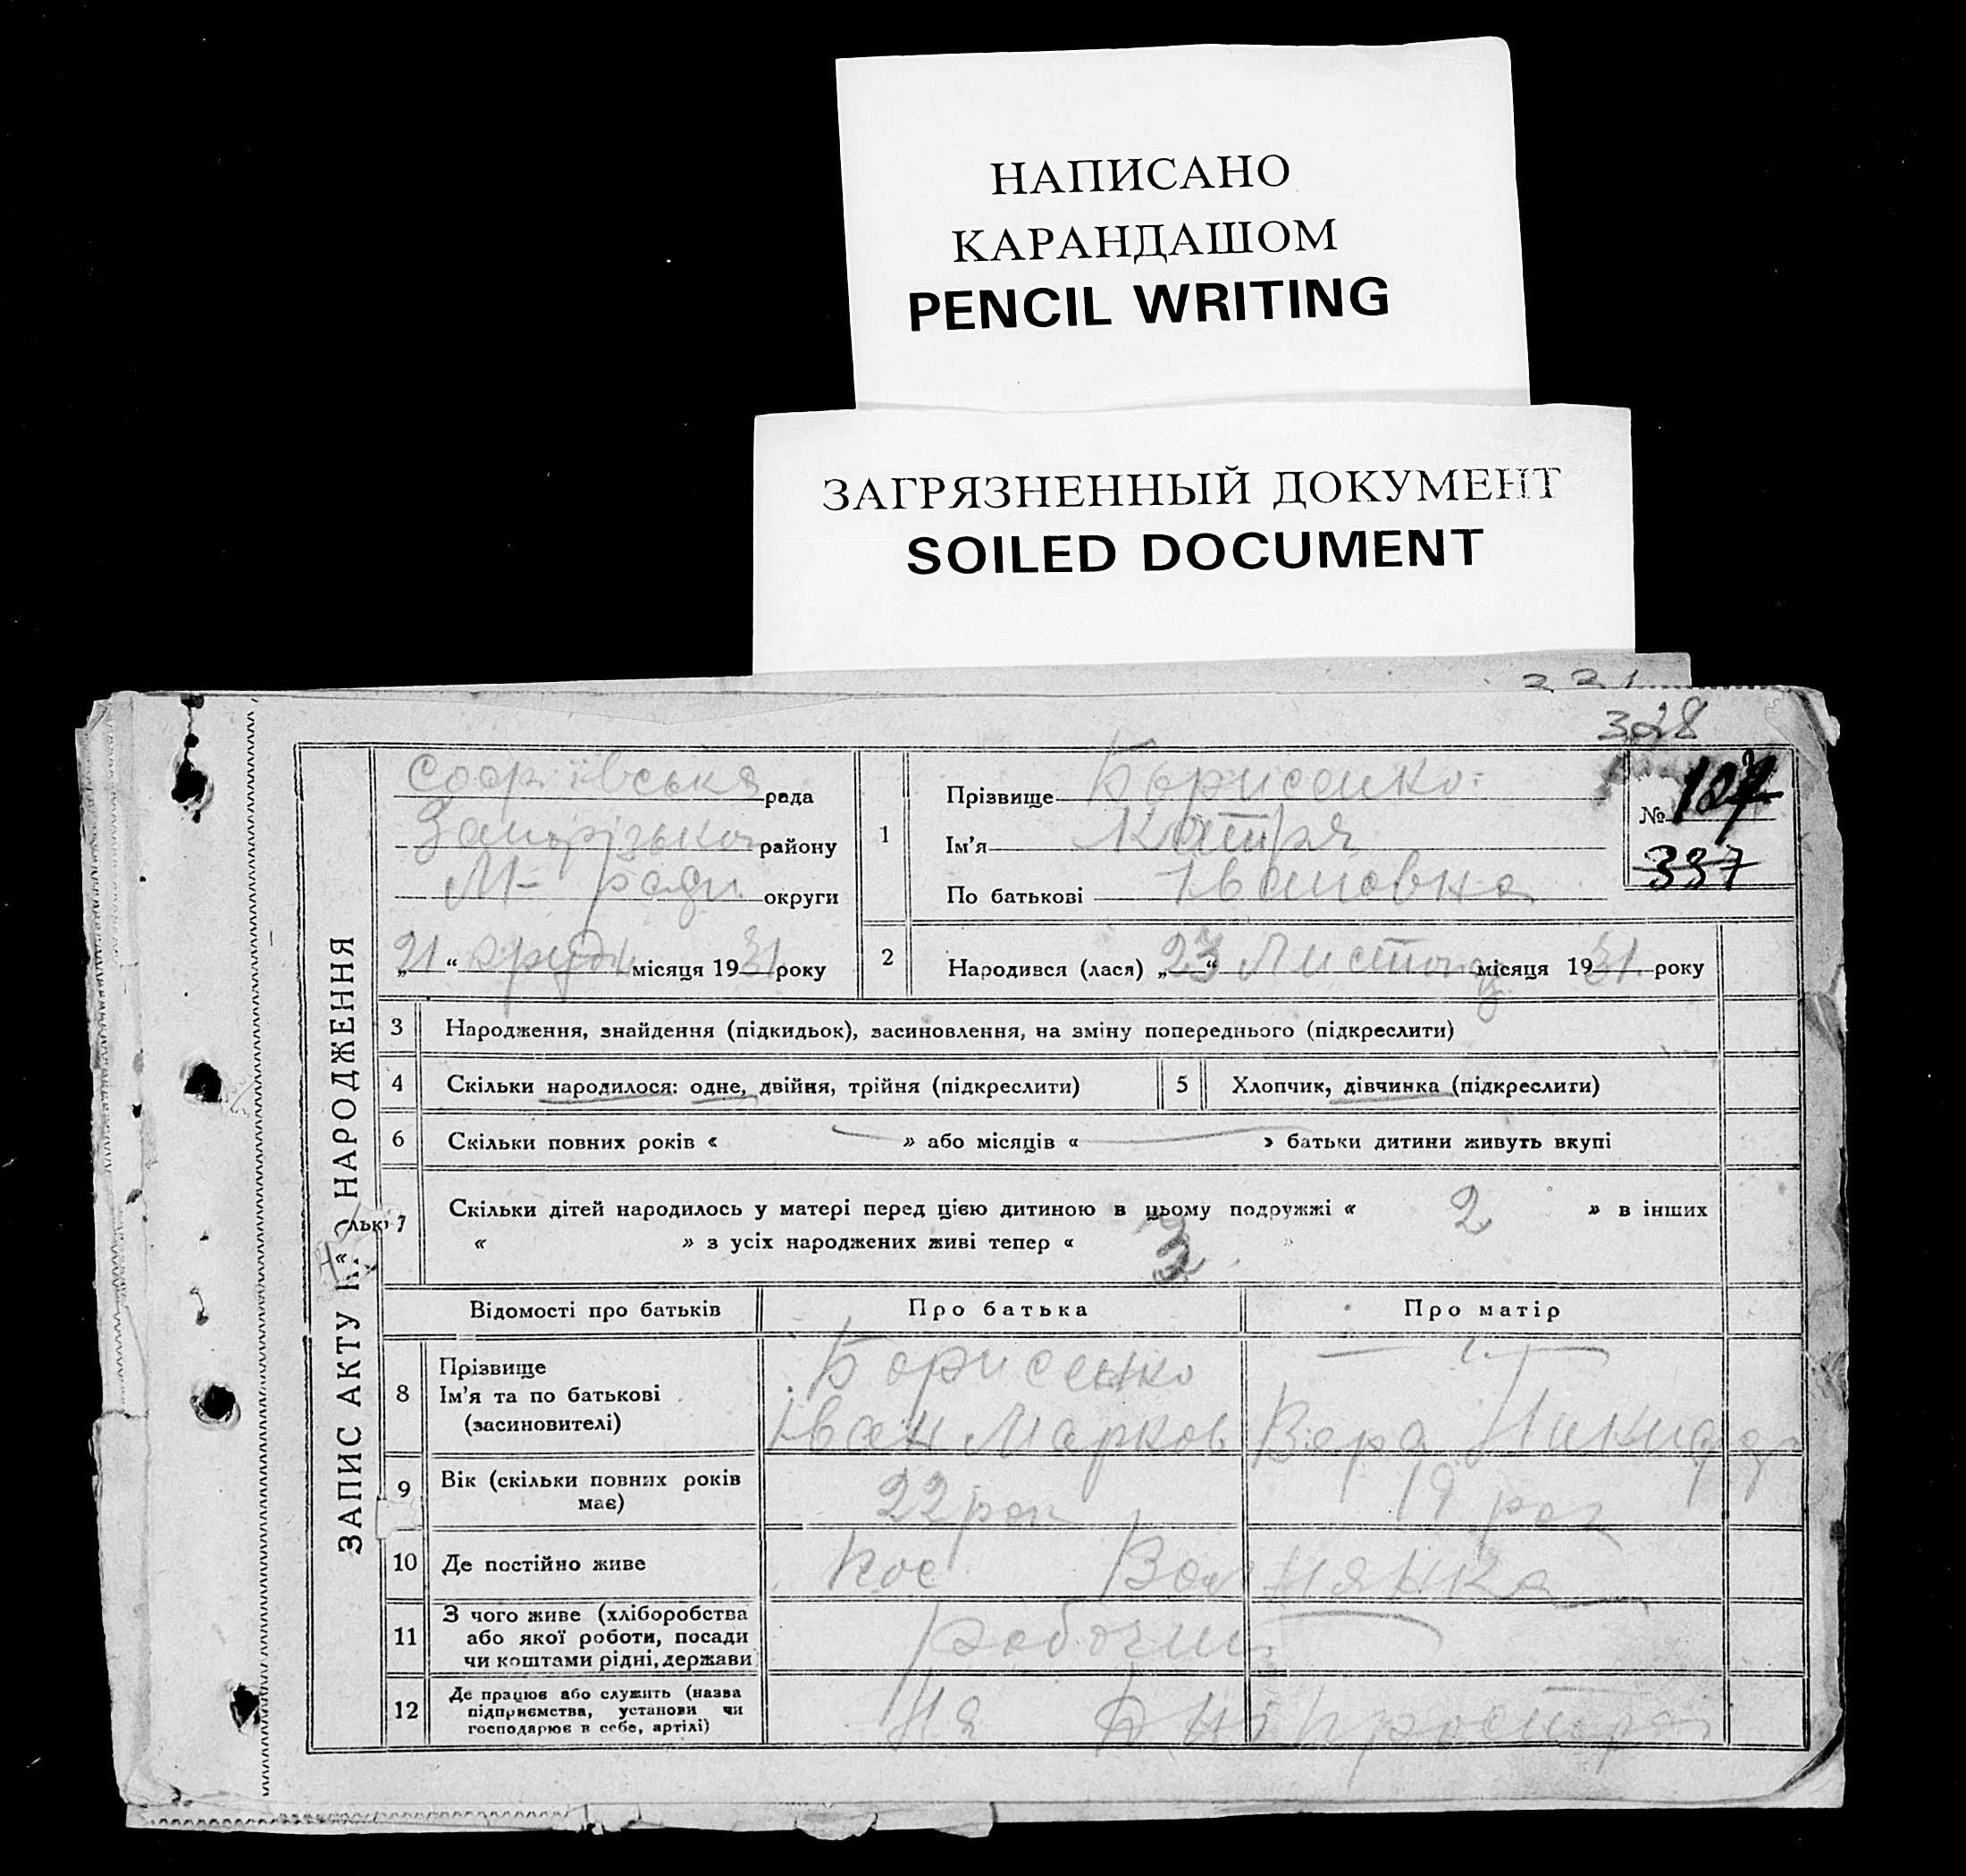 НАПИСАНО
КАРАНДАШОМ
PENCIL WRITING
ЗАГРЯЗНЕННЫЙ ДОКУМЕНТ
SOILED DOCUMENT
331
328
ЗАПИС АКТУ НАРОДЖЕННЯ
Софіївська рада
Запорізької району
М- ради округи
„21“ грудн місяця 1931 року
1
Прізвище Борисенко
Ім'я Катря
По батькові Івановна
№ 127
337
2
Народився (лася) „23“ Листопц місяця 1931 року
3 Народження, знайдення (підкидьок), засиновлення, на зміну попереднього (підкреслити)
4 Скільки народилося: одне, двійня, трійня (підкреслити)
5 Хлопчик, дівчинка (підкреслити)
6 Скільки повних років « — » або місяців « — » батьки дитини живуть вкупі
7 Скільки дітей народилось у матері перед цією дитиною в цьому подружжі « 2 » в інших
« » з усіх народжених живі тепер « 3 »
Відомості про батьків Про батька Про матір
8 Прізвище
Ім'я та по батькові
(засиновителі)
Борисенко
Іван Марков
Вера
9 Вік (скільки повних років
має)
22 рок
19 рок
10 Де постійно живе
Пос
11 З чого живе (хліборобства
або якої роботи, посади
чи коштами рідні, держави
робочий
12 Де працює або служить (назва
підприємства, установи чи
господарює в себе, артілі)
На Дніпрострої